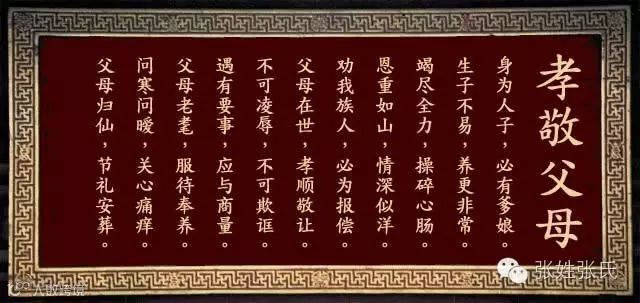 孝敬父母
身为人子，必有爹娘。
生子不易，养更非常。
竭尽全力，操碎心肠。
恩重如山，情深似洋。
劝我族人，必为报偿。
父母在世，孝顺敬让。
不可凌辱，不可欺诓。
遇有要事，应与商量。
父母老耄，服待奉养。
问寒问暖，关心痛痒。
父母归仙，节礼安葬。
张姓张氏